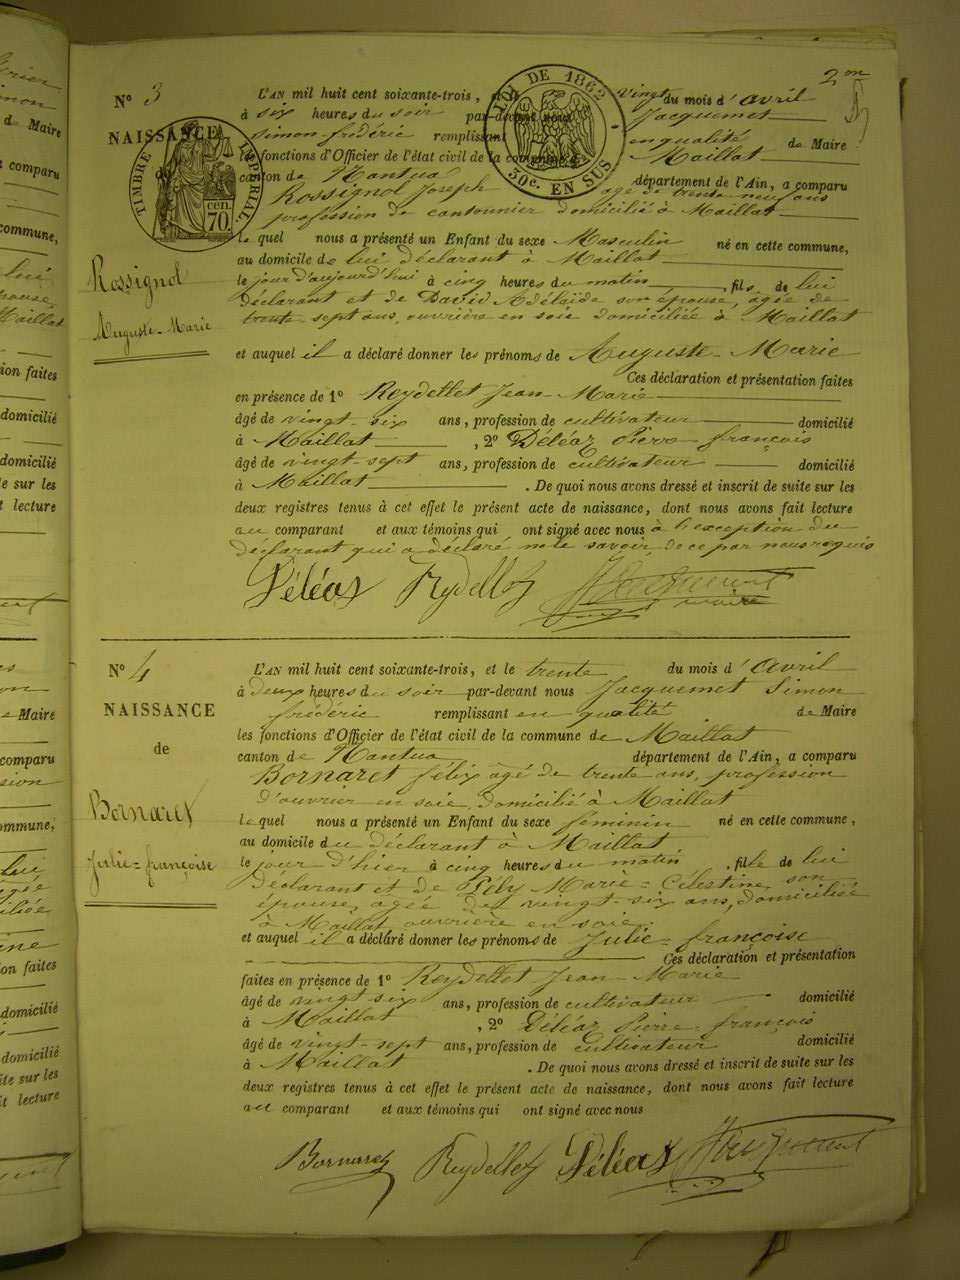 2me
N° 3
NAISSANCE
TIMBRE IMPÉRIAL
70. cen.
LOI DE 1862
30c. EN SUS
Rossignol
Auguste-Marie
L'AN mil huit cent soixante-trois, et le vingt du mois d'avril
à six heures du soir par-devant nous Jacquemet
Simon-frédéric remplissant en qualité de Maire
les fonctions d'Officier de l'état civil de la commune de Maillat
canton de Nantua département de l'Ain, a comparu
Rossignol Joseph agé de trente neuf ans
profession de cantonnier domicilié à Maillat
le quel nous a présenté un Enfant du sexe Masculin né en cette commune,
au domicile de lui déclarant à Maillat
le jour d'aujourd'hui à cinq heures du matin, fils de lui
déclarant et de David Adélaïde son épouse, agée de
trente-sept ans, ouvrière en soie domiciliée à Maillat
et auquel il a déclaré donner les prénoms de Auguste-Marie
Ces déclaration et présentation faites
en présence de 1° Reydellet Jean-Marie
âgé de vingt-six ans, profession de cultivateur domicilié
à Maillat, 2° Déléaz Pierre-françois
âgé de vingt-sept ans, profession de cultivateur domicilié
à Maillat. De quoi nous avons dressé et inscrit de suite sur les
deux registres tenus à cet effet le présent acte de naissance, dont nous avons fait lecture
au comparant et aux témoins qui ont signé avec nous à l'exception du
déclarant qui a déclaré ne le savoir, de ce par nous requis
Déléaz Reydellet Jacquemet
maire
N° 4
NAISSANCE
de
Bornaret
Julie-françoise
L'AN mil huit cent soixante-trois, et le trente du mois d'avril
à deux heures du soir par-devant nous Jacquemet Simon
frédéric remplissant en qualité de Maire
les fonctions d'Officier de l'état civil de la commune de Maillat
canton de Nantua département de l'Ain, a comparu
Bornaret félix agé de trente ans, profession
d'ouvrier en soie, domicilié à Maillat
le quel nous a présenté un Enfant du sexe féminin né en cette commune,
au domicile du déclarant à Maillat
le jour d'hier à cinq heures du matin, fille de lui
déclarant et de Pély Marie-Célestine, son
épouse, agée de vingt-six ans, domiciliée
à Maillat, ouvrière en soie,
et auquel il a déclaré donner les prénoms de Julie-françoise
Ces déclaration et présentation
faites en présence de 1° Reydellet Jean-Marie
âgé de vingt-six ans, profession de cultivateur domicilié
à Maillat, 2° Déléaz Pierre-françois
âgé de vingt-sept ans, profession de cultivateur domicilié
à Maillat. De quoi nous avons dressé et inscrit de suite sur les
deux registres tenus à cet effet le présent acte de naissance, dont nous avons fait lecture
au comparant et aux témoins qui ont signé avec nous
Bornaret Reydellet Déléaz Jacquemet